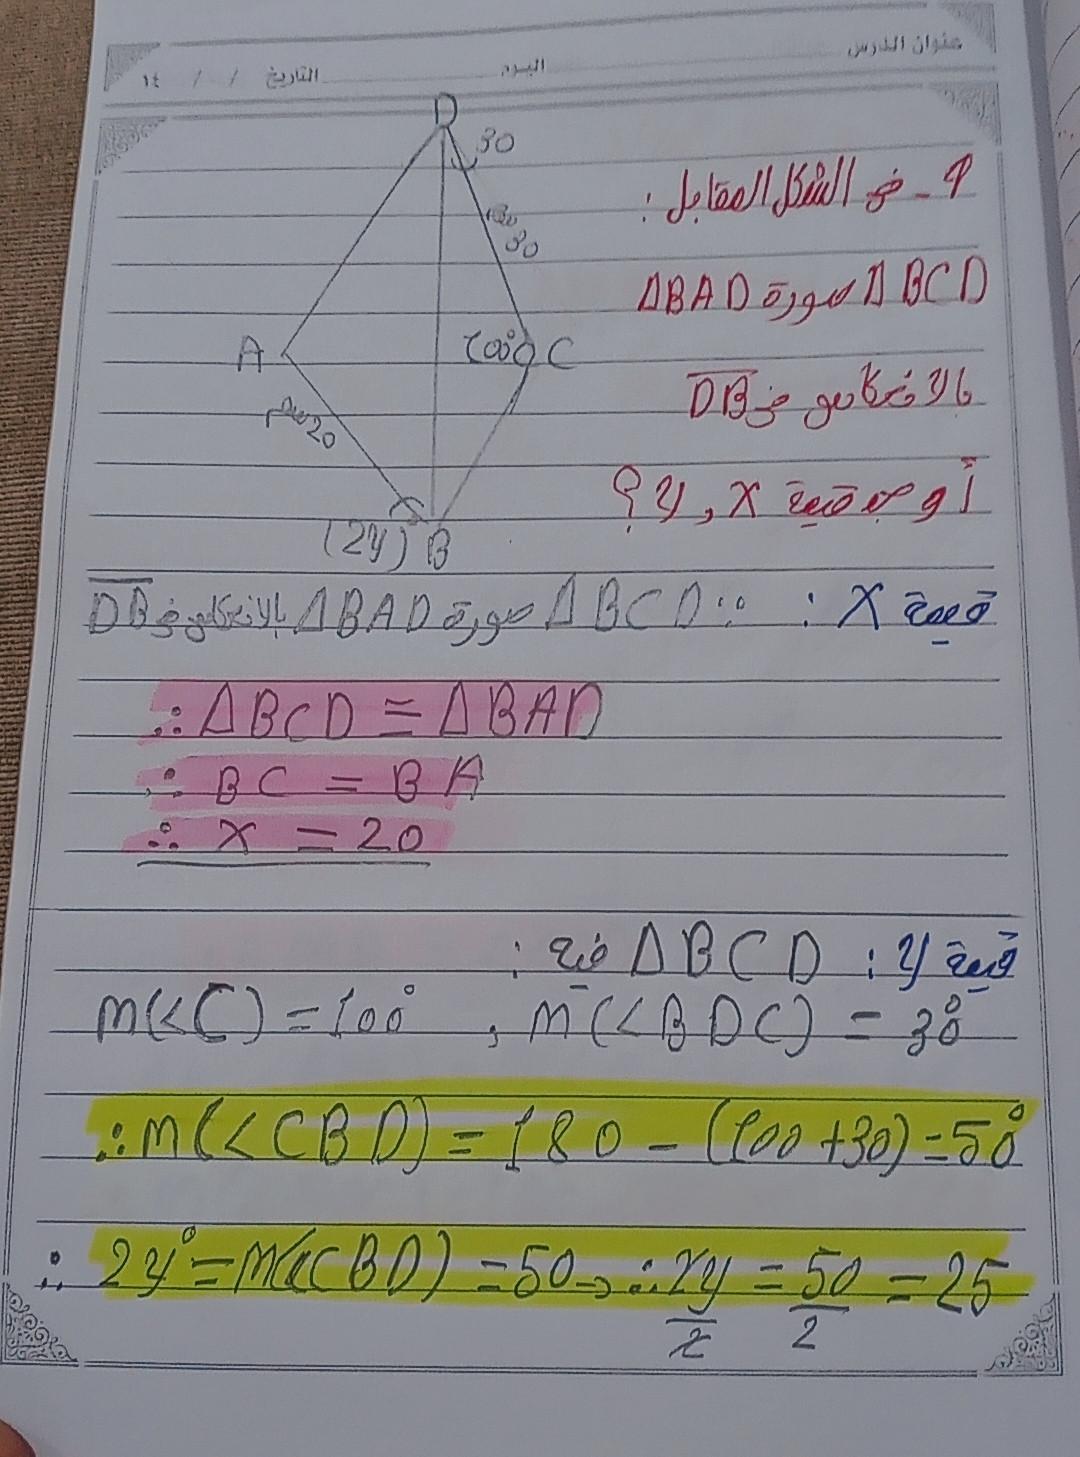 عنوان الدرس
اليوم
التاريخ / / ١٤
D
30
٩ - في الشكل المقابل :
30
Δ BCD صورة Δ BAD
A
100° C
بالانعكاس في DB
20
أوجد قيمة x , y ؟
(2y) B
قيمة x : ∵ Δ BCD صورة Δ BAD بالانعكاس في DB
∴ Δ BCD ≡ Δ BAD
∴ BC = BA
∴ x = 20
قيمة y : Δ BCD فيه :
m(<C) = 100° , m(<BDC) = 30°
∴ m(<CBD) = 180 - (100+30) = 50°
∴ 2y° = m(<CBD) = 50 → ∴ 2y/2 = 50/2 = 25